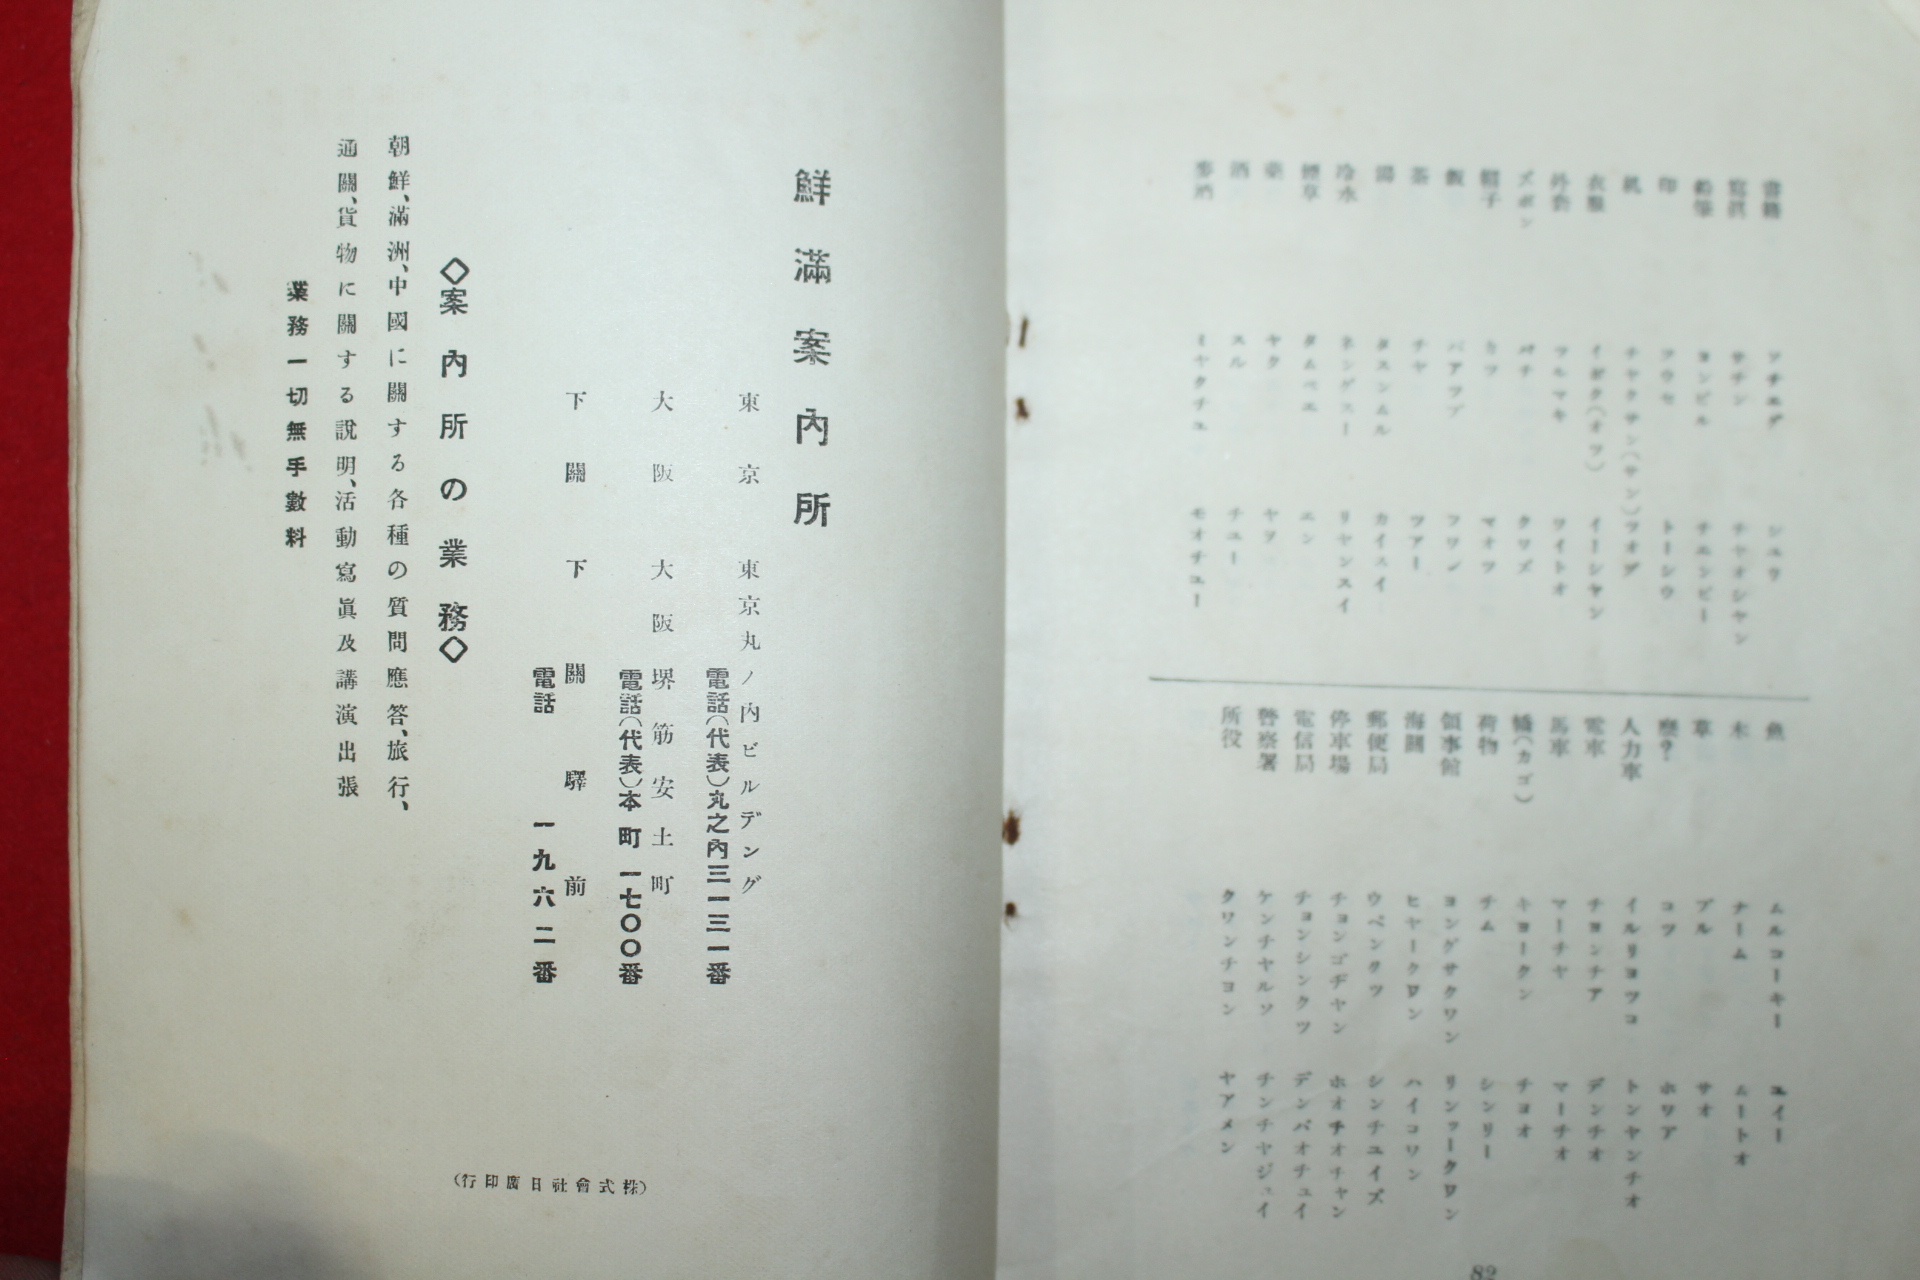 書籍 ソチエグ シユウ
寫眞 サチン チヤオシヤン
鉛筆 ヨンピル チエンピー
印 トーシウ
紙
衣服 イボク(オツ) イーシヤン
外套 ツルマキ ワイトオ
ズボン バチ クワズ
帽子 マオツ
飯 パアツプ フワン
茶 チヤ ツアー
湯 カイスイ
冷水 ネングスー リヤンスイ
煙草 タムベエ エン
藥 ヤク ヤヲ
酒 スル チユー
麥酒 ミヤクチユ モオチユー
魚 ムルコーキー ユイー
木 ナーム ムートオ
草 プル サオ
コツ ホワア
人力車 イルリヨツコ トンヤンチオ
電車 チヨンチア デンチオ
馬車 マーチヤ マーチオ
轎(カゴ) キヨークン チヨオ
荷物 チム シンリー
領事館 ヨングサクワン
海關 ヒヤークワン ハイコワン
郵便局 ウペンクツ シンチユイズ
停車場 チヨンゴヂヤン ホオチオチヤン
電信局 チヨンシンクツ デンパオチユイ
警察署 ケンチヤルソ チンチヤジユイ
所役 クワンチヨン ヤアメン
82
鮮滿案内所
東京 東京丸ノ内ビルデング
電話(代表)丸之内三一三一番
大阪 大阪堺筋安土町
電話(代表)本町一七〇〇番
下關 下關驛前
電話 一九六二番
◇案内所の業務◇
朝鮮、滿洲、中國に關する各種の質問應答、旅行、
通關、貨物に關する說明、活動寫眞及講演出張
業務一切無手數料
(株式會社日廣印行)